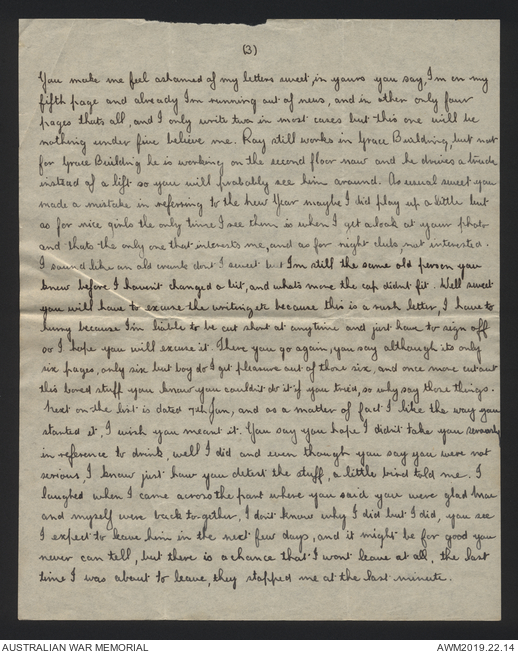 (3)
You make me feel ashamed of my letters sweet, in yours you say, I'm on my
fifth page and already I'm running out of news, and in other only four
pages thats all, and I only write two in most cases but this one will be
nothing under five believe me. Ray still works in Grace Building, but not
for Grace Building he is working on the second floor now and he drives a truck
instead of a lift so you will probably see him around. As usual sweet you
made a mistake in referring to the New Year maybe I did play up a little but
as for nice girls the only time I see them is when I get a look at your photo
and thats the only one that interests me, and as for night clubs, not interested.
I sound like an old crank don't I sweet but I'm still the same old person you
knew before I haven't changed a bit, and whats more the cap didnt fit. Well sweet
you will have to excuse the writing etc because this is a rush letter, I have to
hurry because I'm liable to be cut short at anytime and just have to sign off
so I hope you will excuse it. There you go again, you say although its only
six pages, only six but boy do I get pleasure out of those six, and once more cut out
this bored stuff you know you couldn't do it if you tried, so why say those things.
Next on the list is dated 7th Jan, and as a matter of fact I like the way you
started it, I wish you meant it. You say you hope I didn't take you seriously
in reference to drink, well I did and even though you say you were not
serious, I know just how you detest the stuff, a little bird told me. I
laughed when I came across the part where you said you were glad
and myself were back together, I don't know why I did but I did, you see
I expect to leave him in the next few days, and it might be for good you
never can tell, but there is a chance that I wont leave at all, the last
time I was about to leave, they stopped me at the last minute.
AUSTRALIAN WAR MEMORIAL
AWM2019.22.14